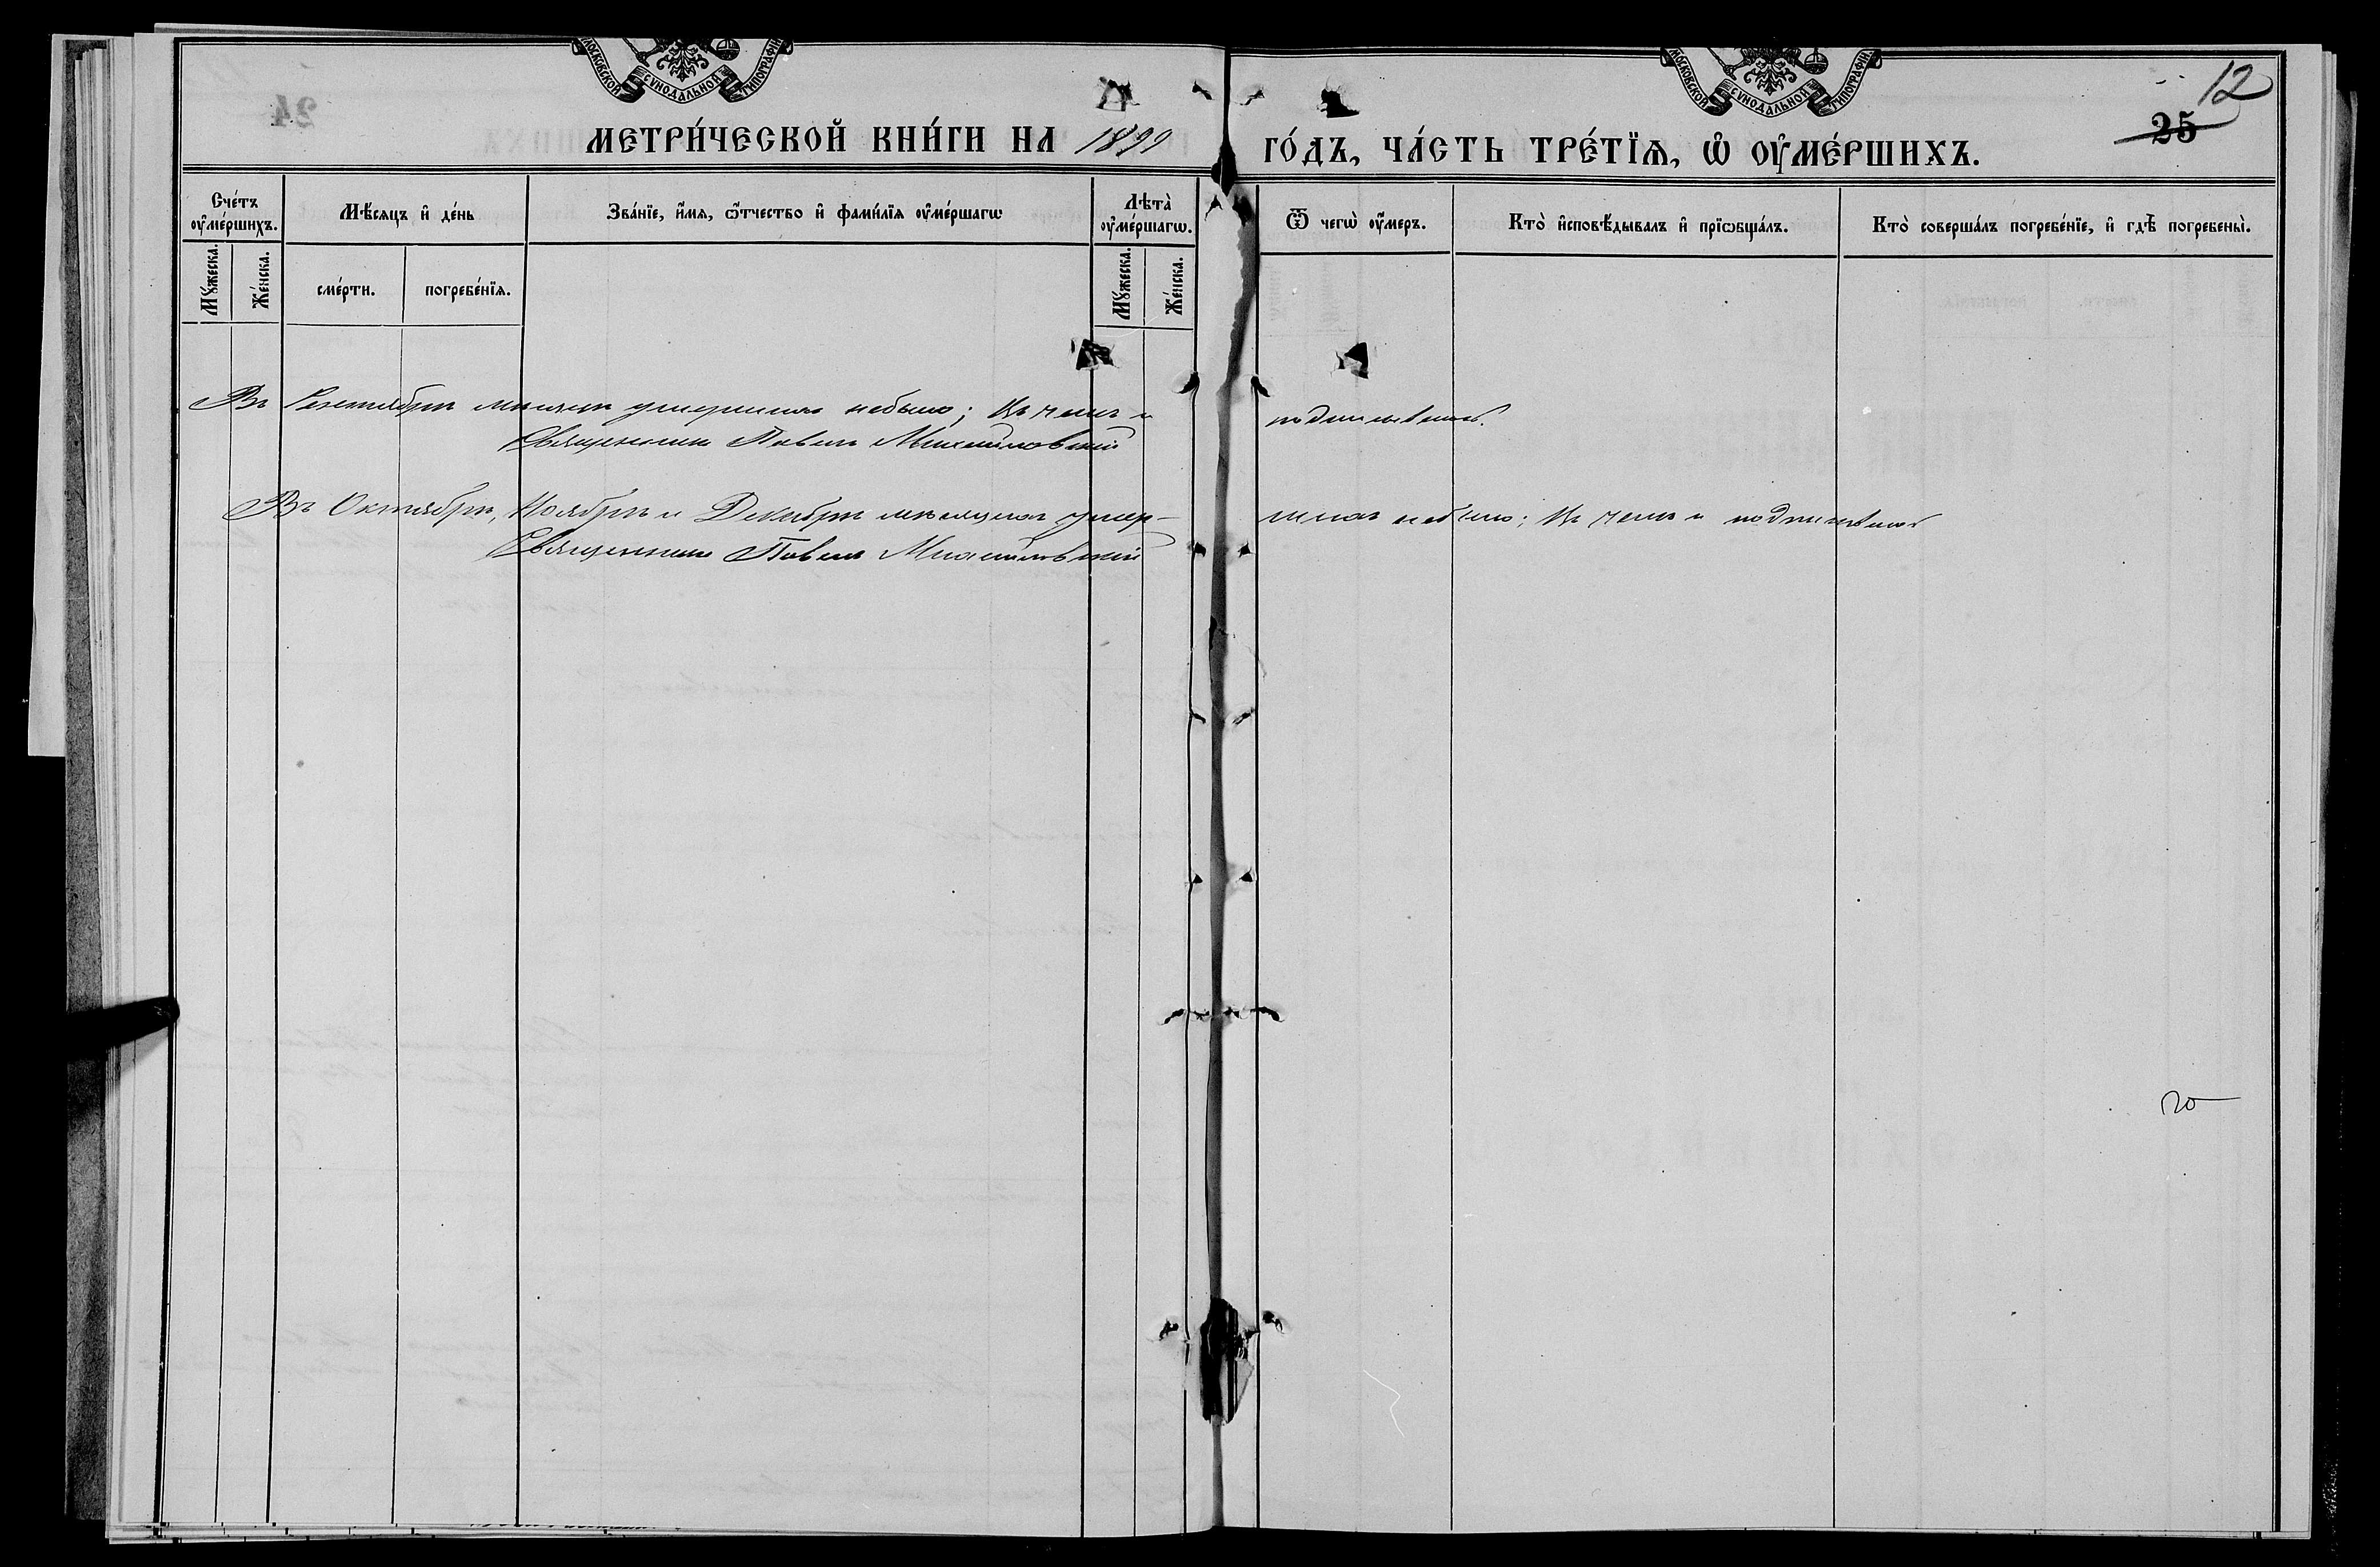 МОСКОВСКОЙ СѴНОДАЛЬНОЙ ТИПОГРАФІИ.
МОСКОВСКОЙ СѴНОДАЛЬНОЙ ТИПОГРАФІИ.
12
25
МЕТРИ́ЧЕСКОЙ КНИ́ГИ НА 1899 ГО́ДЪ, ЧА́СТЬ ТРЕ́ТЇѦ, Ѡ҆ ОУ҆МЕ́РШИХЪ.
Сче́тъ оу҆ме́ршихъ.
Мѣ́сяцъ и҆ де́нь
Зва́нїе, и҆́мѧ, ѻ҆́тчество и҆ фами́лїѧ оу҆ме́ршагѡ
Лѣта̀ оу҆ме́ршагѡ.
Ѿ чегѡ̀ оу҆́меръ.
Кто̀ и҆сповѣ́дывалъ и҆ прїѡбща́лъ.
Кто̀ соверша́лъ погребе́нїе, и҆ гдѣ̀ погребены̀.
Мꙋ́жеска.
Же́нска.
сме́рти.
погребе́нїѧ.
Мꙋ́жеска.
Же́нска.
Въ Сентябрѣ мѣсяцѣ умершихъ небыло; Въ чемъ и подписываюсь.
Священникъ Павелъ Михайловскій
Въ Октябрѣ, Ноябрѣ и Декабрѣ мѣсяцахъ умер-
шихъ небыло; Въ чемъ и подписываюсь
Священникъ Павелъ Михайловскій